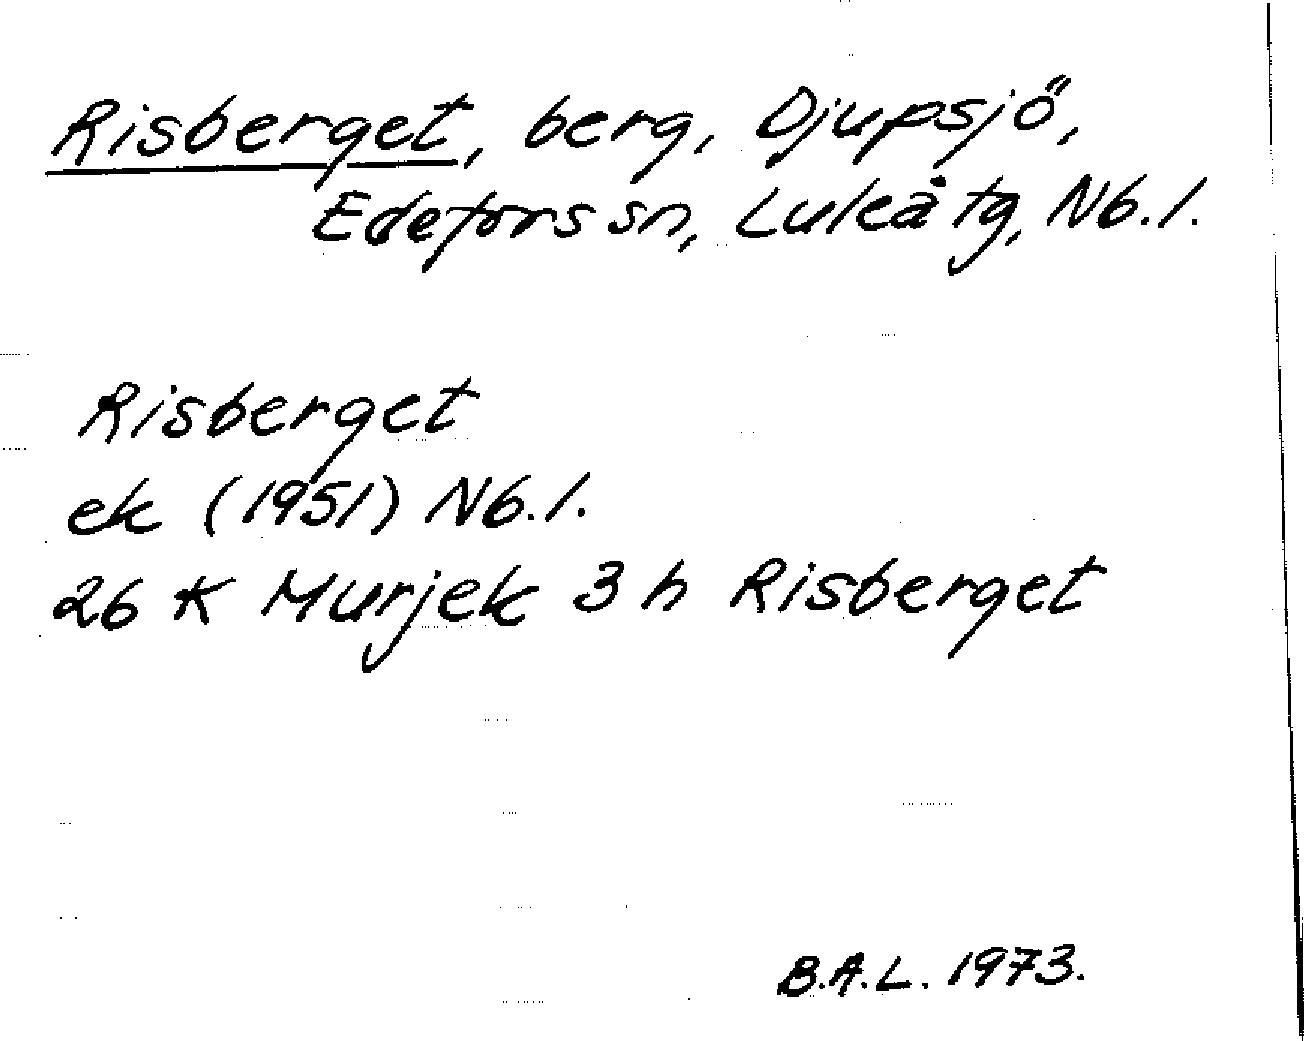 Risberget, berg, Djupsjö,
Edefors sn, Luleå tg, Nb.l.
Risberget
ek (1951) Nb.l.
26 K Murjek 3 h Risberget
B.A.L. 1973.